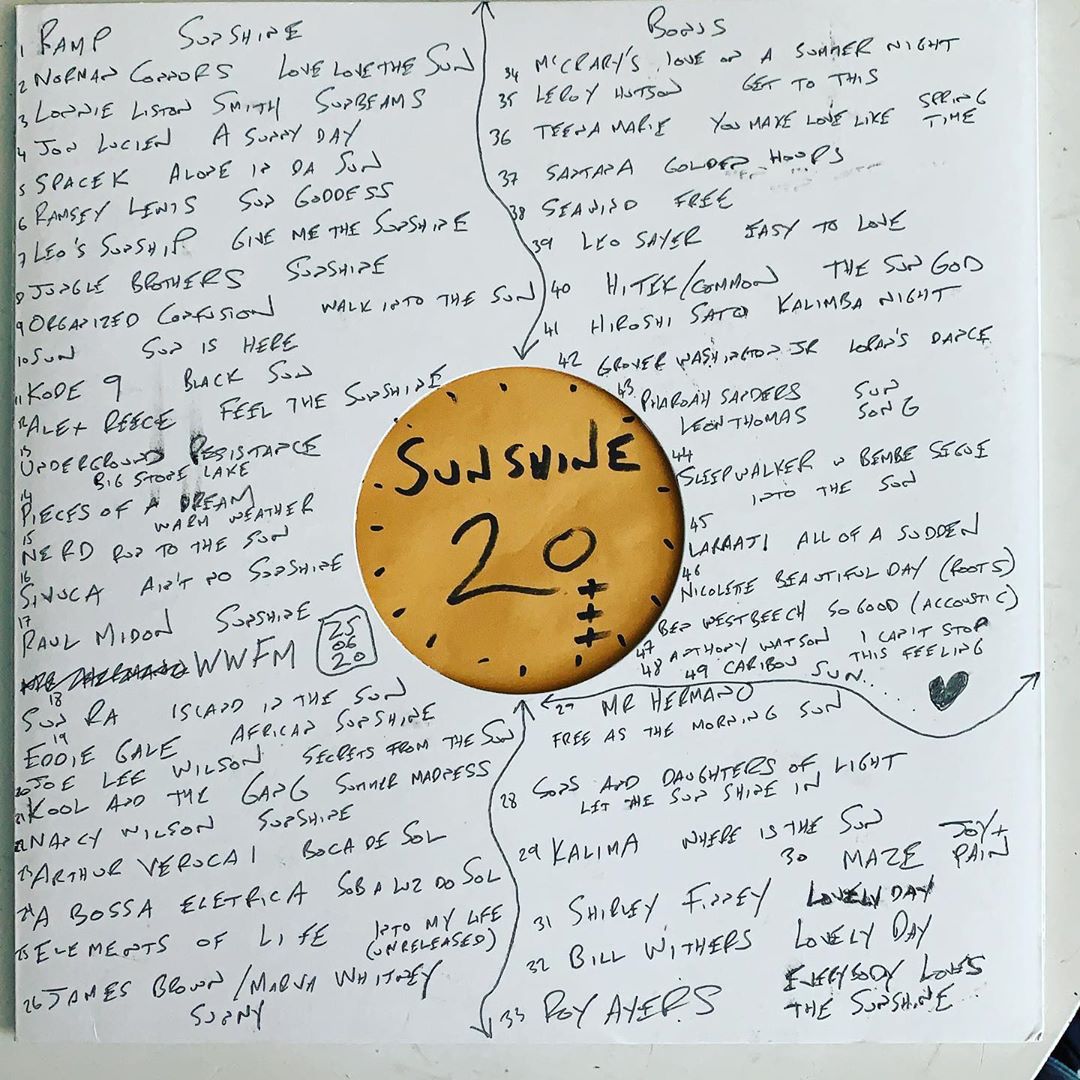 1 RAMP SUNSHINE
2 NORMAN CONNORS LOVE LOVE THE SUN
3 LONNIE LISTON SMITH SUNBEAMS
4 JON LUCIEN A SUNNY DAY
5 SPACEK ALONE IN DA SUN
6 RAMSEY LEWIS SUN GODDESS
7 LEO'S SUNSHIP GIVE ME THE SUNSHINE
8 JUNGLE BROTHERS SUNSHINE
9 ORGANIZED CONFUSION WALK INTO THE SUN
10 SUN SUN IS HERE
11 KODE 9 BLACK SUN
12 ALEX REECE FEEL THE SUNSHINE
13 UNDERGROUND RESISTANCE
BIG STONE LAKE
14 PIECES OF A DREAM
WARM WEATHER
15 NERD RUN TO THE SUN
16 SIVUCA AIN'T NO SUNSHINE
17 RAUL MIDON SUNSHINE
WWFM 25 06 20
18 SUN RA ISLAND IN THE SUN
19 EDDIE GALE AFRICAN SUNSHINE
20 JOE LEE WILSON SECRETS FROM THE SUN
21 KOOL AND THE GANG SUMMER MADNESS
22 NANCY WILSON SUNSHINE
23 ARTHUR VEROCAI BOCA DE SOL
24 A BOSSA ELETRICA SOB A LUZ DO SOL
25 ELEMENTS OF LIFE INTO MY LIFE
(UNRELEASED)
26 JAMES BROWN/MARVA WHITNEY
SUNNY
SUNSHINE
20
+
+
+
BONUS
34 McCRARY'S LOVE ON A SUMMER NIGHT
35 LEROY HUTSON GET TO THIS
36 TEENA MARIE YOU MAKE LOVE LIKE SPRING
TIME
37 SANTANA GOLDEN HOOPS
38 SEAWIND FREE
39 LEO SAYER EASY TO LOVE
40 HITEK/COMMON THE SUN GOD
41 HIROSHI SATO KALIMBA NIGHT
42 GROVER WASHINGTON JR LORAN'S DANCE
43 PHAROAH SANDERS SUN
LEON THOMAS SONG
44 SLEEPWALKER W BEMBE SEGUE
INTO THE SUN
45 LARAAJI ALL OF A SUDDEN
46 NICOLETTE BEAUTIFUL DAY (ROOTS)
47 BEN WESTBEECH SO GOOD (ACCOUSTIC)
48 ANTHONY WATSON I CAN'T STOP
THIS FEELING
49 CARIBOU SUN..
27 MR HERMANO
FREE AS THE MORNING SUN
28 SONS AND DAUGHTERS OF LIGHT
LET THE SUN SHINE IN
29 KALIMA WHERE IS THE SUN
30 MAZE JOY + PAIN
31 SHIRLEY FINNEY LOVELY DAY
32 BILL WITHERS LOVELY DAY
33 ROY AYERS EVERYBODY LOVES
THE SUNSHINE...